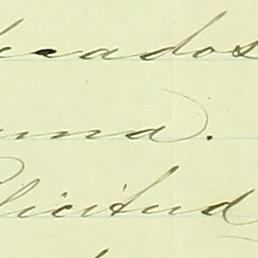 rados
una.
licitud